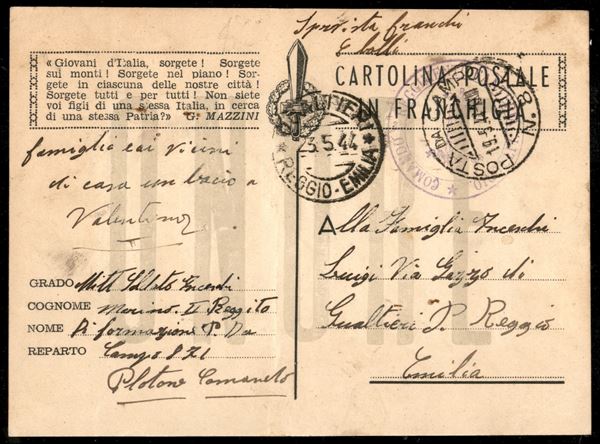 Sprovista franchi
e bolli
« Giovani d'Italia, sorgete! Sorgete
sui monti! Sorgete nel piano! Sor-
gete in ciascuna delle nostre città!
Sorgete tutti e per tutti! Non siete
voi figli di una stessa Italia, in cerca
di una stessa Patria?» G. MAZZINI
CARTOLINA POSTALE
IN FRANCHIGIA
GUALTIERI
23.5.44
REGGIO-EMILIA
POSTA DA CAMPO
N. 8
COMANDO
famiglia ai vicini
di casa un bacio a
Valentino
GRADO Milt Soldato Incerti
COGNOME Marino. II Reggito
NOME Di formazione P. Da
REPARTO Campo 871
Plotone Comando
Alla Famiglia Incerti
Luigi Via
di
Gualtieri P. Reggio
Emilia